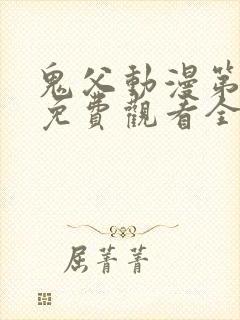 鬼父動漫第
免費觀看全
屈菁菁